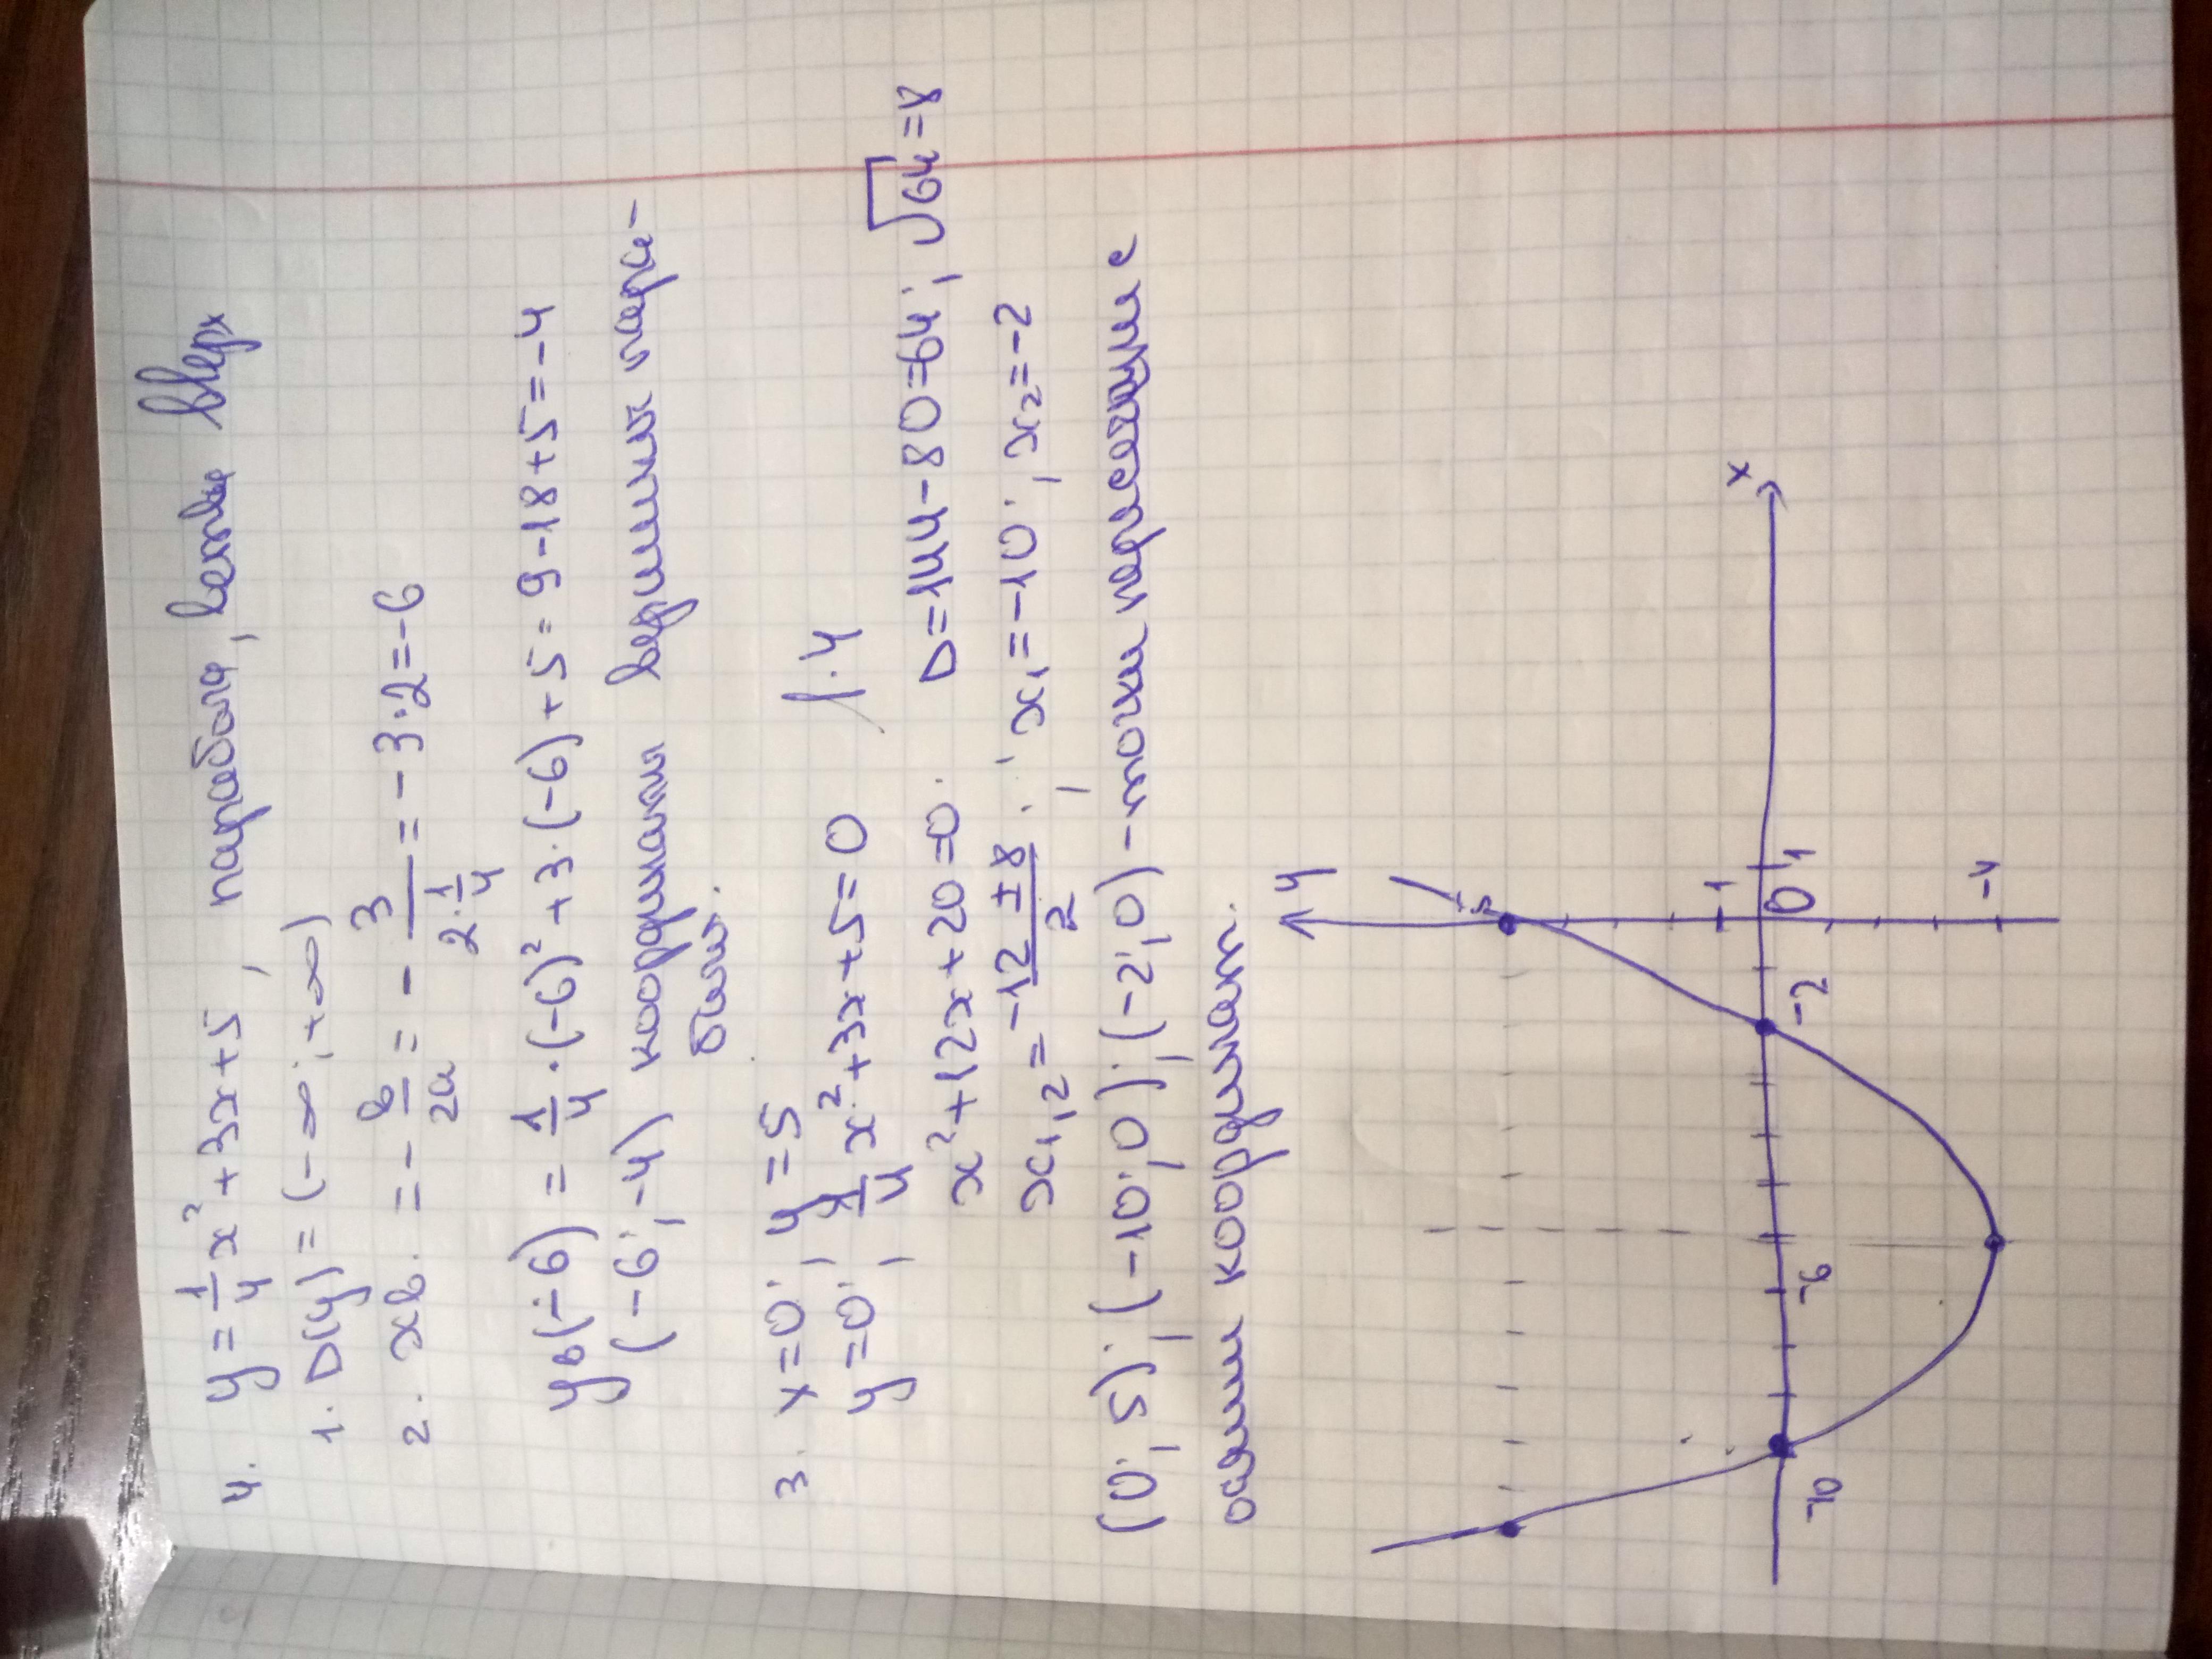 4. y = 1/4 x² + 3x + 5, парабола, ветви вверх
1. D(y) = (-∞; +∞)
2. xв. = - в/2a = - 3/(2·1/4) = -3·2 = -6
yв(-6) = 1/4 · (-6)² + 3·(-6) + 5 = 9 - 18 + 5 = -4
(-6; -4) координаты вершины пара-
болы.
3. x = 0; y = 5
y = 0; 1/4 x² + 3x + 5 = 0 /·4
x² + 12x + 20 = 0. D = 144 - 80 = 64; √64 = 8
x₁,₂ = (-12 ± 8)/2; x₁ = -10; x₂ = -2
(0; 5); (-10; 0); (-2; 0) - точки пересечения с
осями координат.
y
5
x
1
-10
-6
-2
0
1
-4